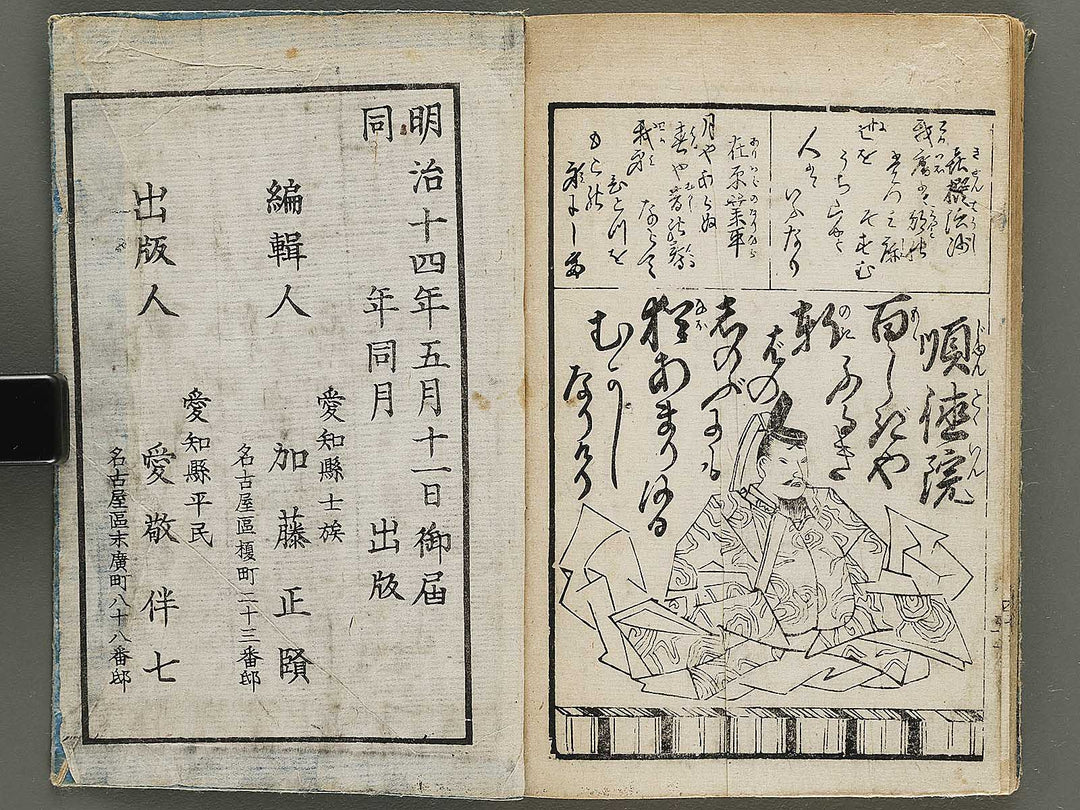 喜撰法師
きせんほうし
我庵は都の
世を
うち山と
人はいふなり
在原業平
月やあらぬ
春や昔の春
ならぬ
我身
ひとつを
もとの
身にして
順徳院
じゆんとくいん
百しきや
ふるき
軒
ばの
しのぶにも
猶あまりある
むかし
なりけり
明治十四年五月十一日御届
同年同月出版
愛知縣士族
編輯人 加藤正賢
名古屋區榎町二十三番邸
愛知縣平民
出版人 愛敬伴七
名古屋區末廣町八十八番邸